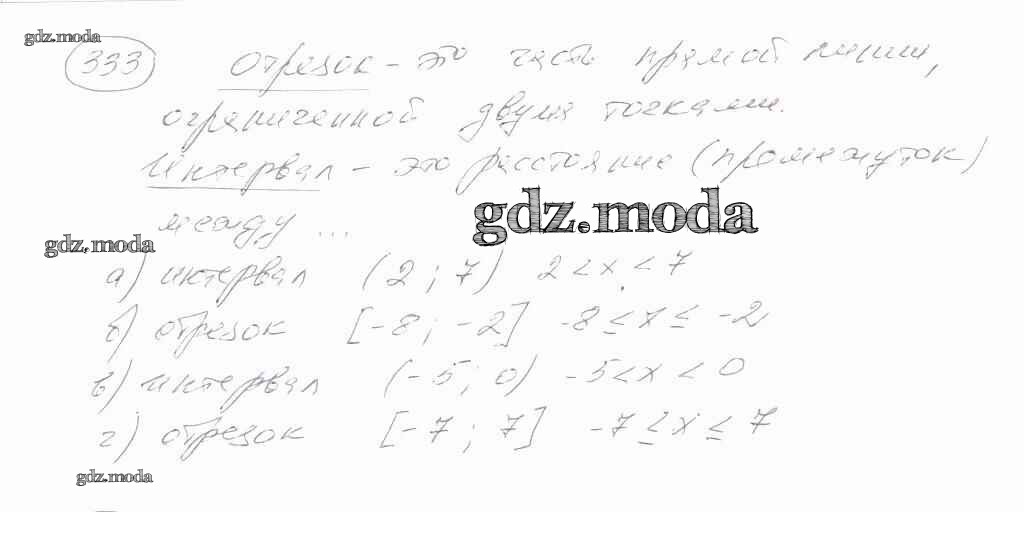 gdz.moda
333 Отрезок - это часть прямой линии,
ограниченной двумя точками.
Интервал - это расстояние (промежуток)
между ...
gdz.moda
gdz.moda
а) интервал (2 ; 7) 2 < x < 7
б) отрезок [-8 ; -2] -8 ≤ x ≤ -2
в) интервал (-5 ; 0) -5 < x < 0
г) отрезок [-7 ; 7] -7 ≤ x ≤ 7
gdz.moda